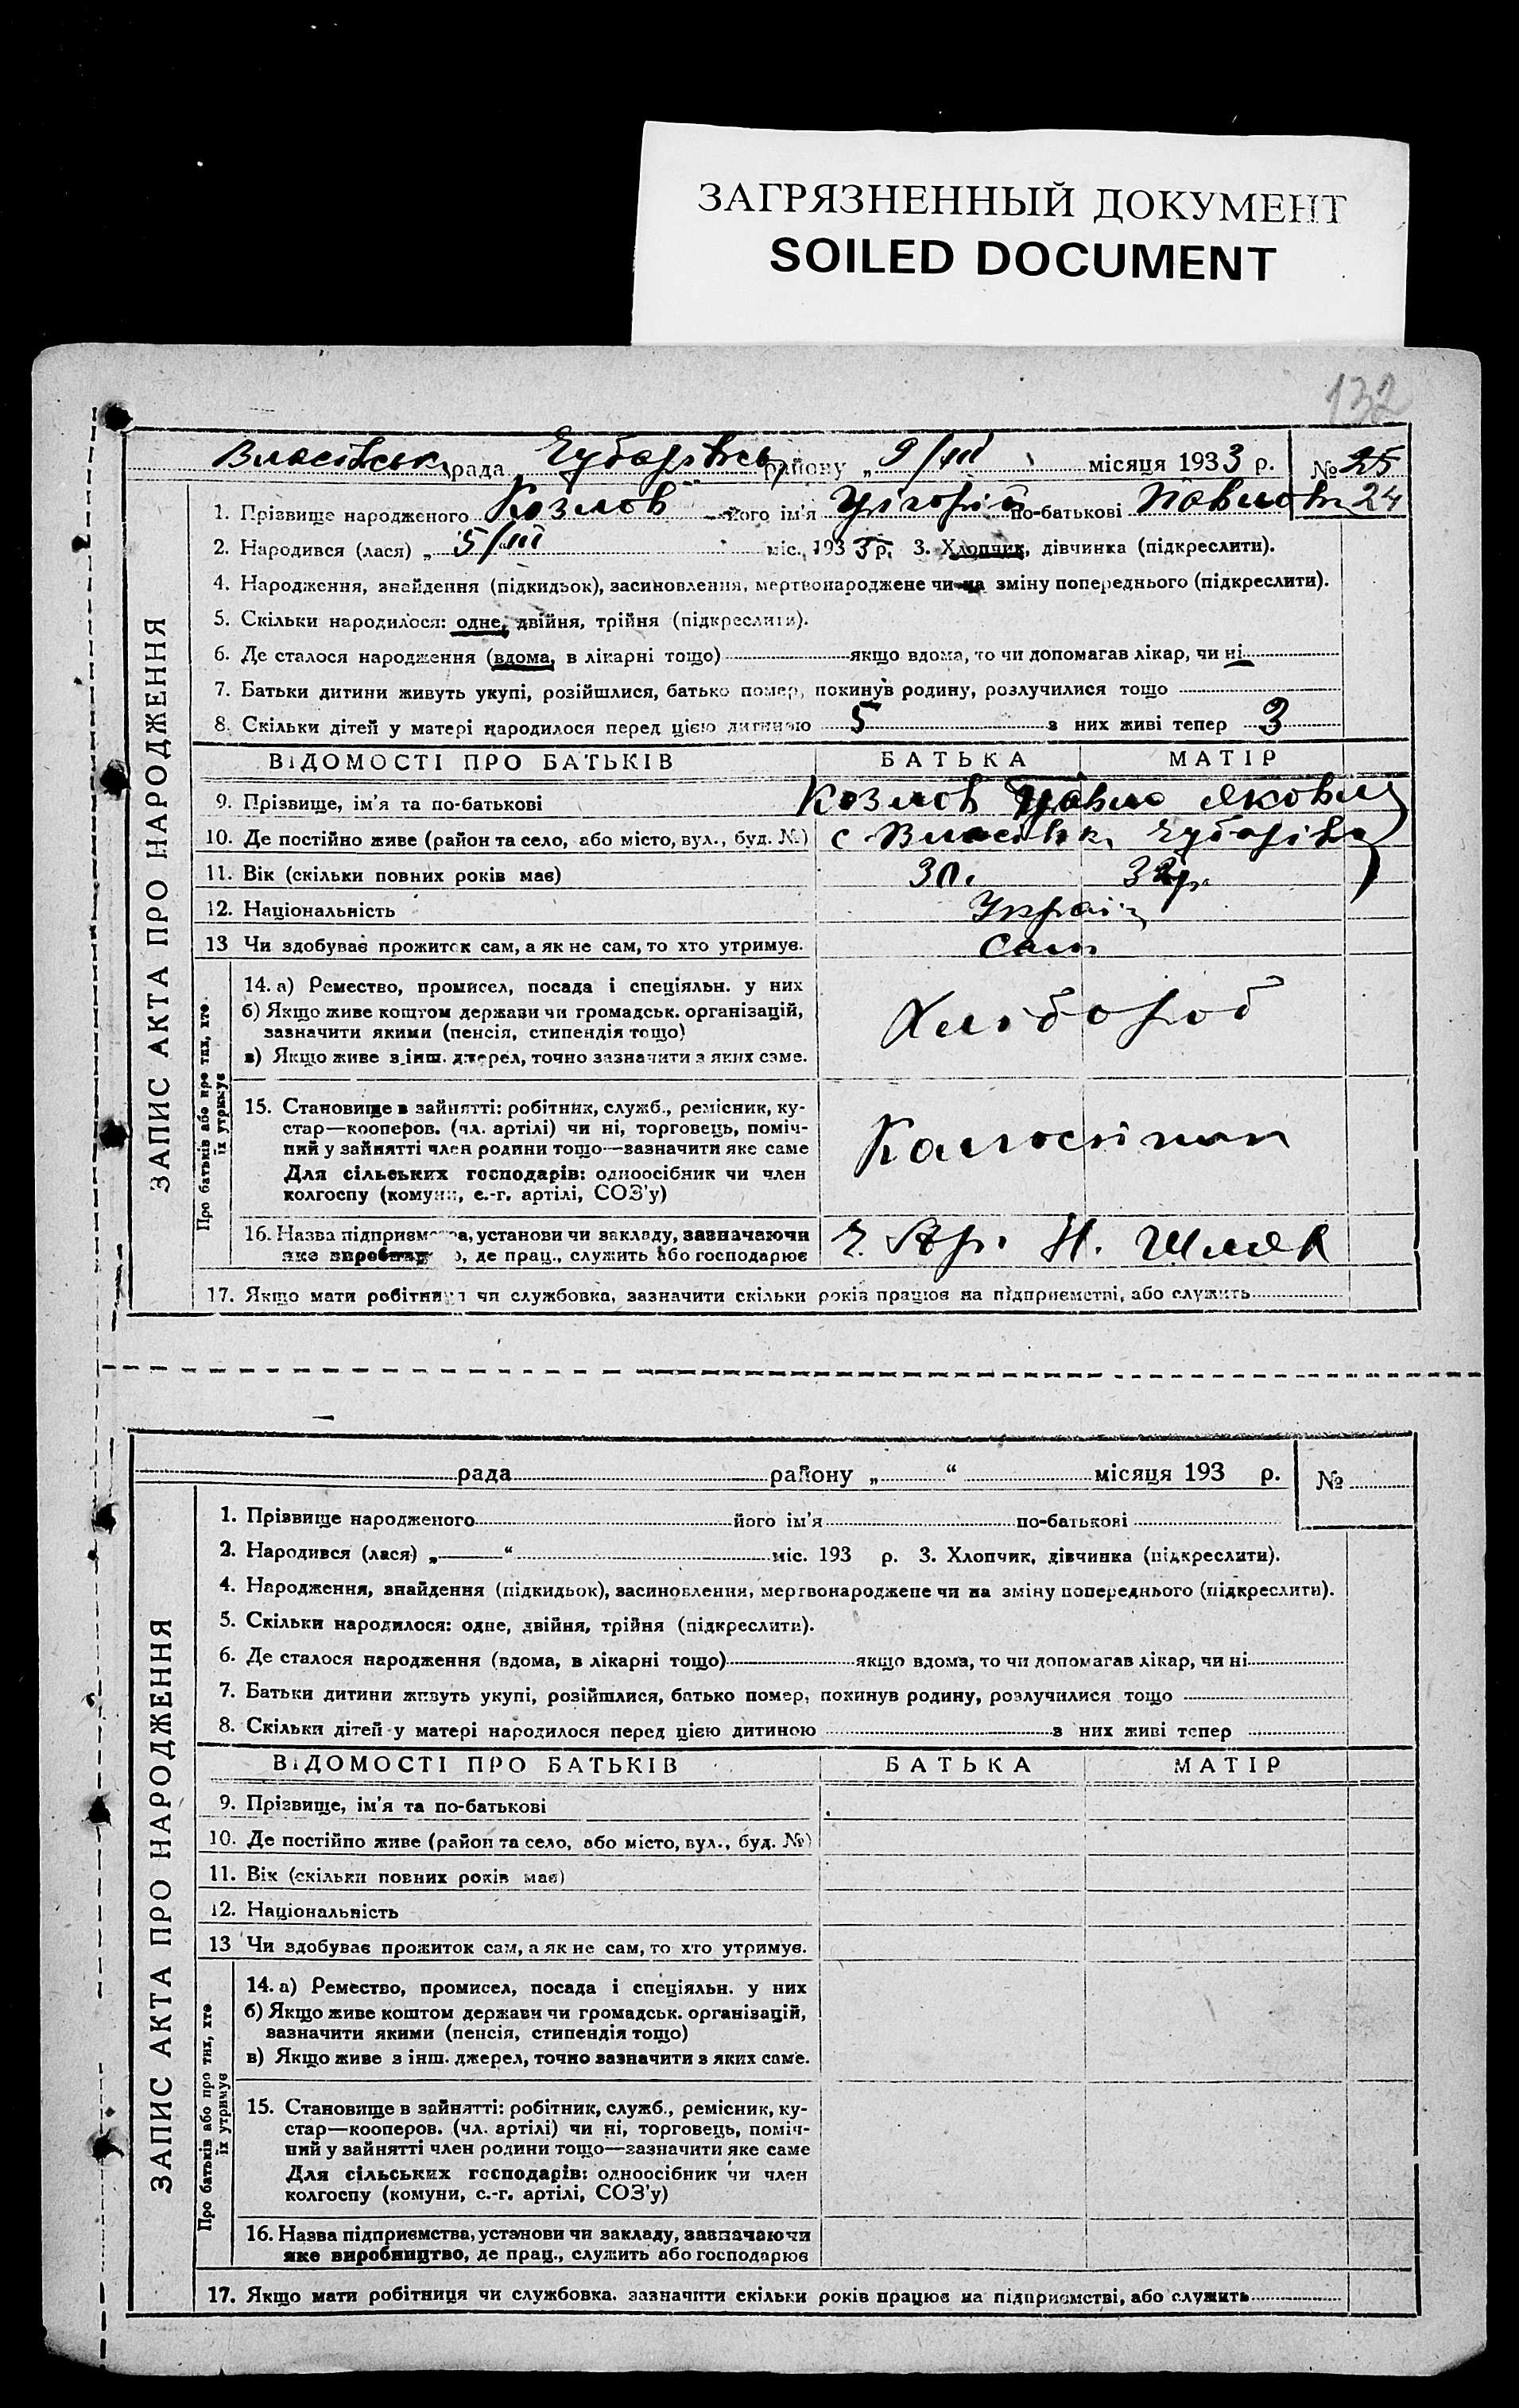 ЗАГРЯЗНЕННЫЙ ДОКУМЕНТ
SOILED DOCUMENT
132
Власівськ рада Чубарівськ району „ 9/III місяця 1933 р. № 25
24
1. Прізвище народженого Козлов його ім'я Григорій по-батькові Павлов
2. Народився (лася) „ 5/III міс. 1933 р. 3. Хлопчик, дівчинка (підкреслити).
4. Народження, знайдення (підкидьок), засиновлення, мертвонароджене чи на зміну попереднього (підкреслити).
5. Скільки народилося: одне, двійня, трійня (підкреслити).
6. Де сталося народження (вдома, в лікарні тощо) якщо вдома, то чи допомагав лікар, чи ні
7. Батьки дитини живуть укупі, розійшлися, батько помер, покинув родину, розлучилися тощо
8. Скільки дітей у матері народилося перед цією дитиною 5 з них живі тепер 3
ЗАПИС АКТА ПРО НАРОДЖЕННЯ
ВІДОМОСТІ ПРО БАТЬКІВ БАТЬКА МАТІР
9. Прізвище, ім'я та по-батькові Козлов Павло Якович
10. Де постійно живе (район та село, або місто, вул., буд. №) с Власівка Чубарівка
11. Вік (скільки повних років має) 30. 32р.
12. Національність Україн
13 Чи здобуває прожиток сам, а як не сам, то хто утримує. Сам
Про батьків або про тих, хто їх утримує
14. а) Ремество, промисел, посада і спеціяльн. у них Хлібороб
б) Якщо живе коштом держави чи громадськ. організацій,
зазначити якими (пенсія, стипендія тощо)
в) Якщо живе з інш. джерел, точно зазначити з яких саме.
15. Становище в зайнятті: робітник, служб., ремісник, ку-
стар—кооперов. (чл. артілі) чи ні, торговець, поміч-
ний у зайнятті член родини тощо—зазначити яке саме
Для сільських господарів: одноосібник чи член
колгоспу (комуни, с.-г. артілі, СОЗ'у)
16. Назва підприємства, установи чи закладу, зазначаючи Ч. Ар. Н. Шлях
яке виробництво, де прац., служить або господарює
17. Якщо мати робітниця чи службовка, зазначити скільки років працює на підприємстві, або служить
рада району „ “ місяця 193 р. №
1. Прізвище народженого його ім'я по-батькові
2. Народився (лася) „ “ міс. 193 р. 3. Хлопчик, дівчинка (підкреслити).
4. Народження, знайдення (підкидьок), засиновлення, мертвонароджене чи на зміну попереднього (підкреслити).
5. Скільки народилося: одне, двійня, трійня (підкреслити).
6. Де сталося народження (вдома, в лікарні тощо) якщо вдома, то чи допомагав лікар, чи ні
7. Батьки дитини живуть укупі, розійшлися, батько помер, покинув родину, розлучилися тощо
8. Скільки дітей у матері народилося перед цією дитиною з них живі тепер
ЗАПИС АКТА ПРО НАРОДЖЕННЯ
ВІДОМОСТІ ПРО БАТЬКІВ БАТЬКА МАТІР
9. Прізвище, ім'я та по-батькові
10. Де постійно живе (район та село, або місто, вул., буд. №)
11. Вік (скільки повних років має)
12. Національність
13 Чи здобуває прожиток сам, а як не сам, то хто утримує.
Про батьків або про тих, хто їх утримує
14. а) Ремество, промисел, посада і спеціяльн. у них
б) Якщо живе коштом держави чи громадськ. організацій,
зазначити якими (пенсія, стипендія тощо)
в) Якщо живе з інш. джерел, точно зазначити з яких саме.
15. Становище в зайнятті: робітник, служб., ремісник, ку-
стар—кооперов. (чл. артілі) чи ні, торговець, поміч-
ний у зайнятті член родини тощо—зазначити яке саме
Для сільських господарів: одноосібник чи член
колгоспу (комуни, с.-г. артілі, СОЗ'у)
16. Назва підприємства, установи чи закладу, зазначаючи
яке виробництво, де прац., служить або господарює
17. Якщо мати робітниця чи службовка. зазначити скільки років працює на підприємстві, або служить